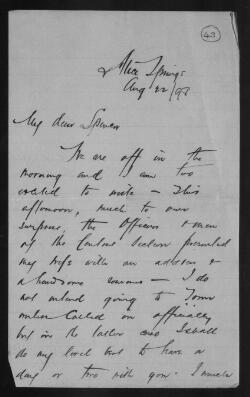 43
Alice Springs
Aug 22/98
My dear Spencer
We are off in the
morning and I am too
excited to write – This
afternoon, much to our
surprise, the Officers & men
of the Central Section presented
my wife with an address &
a handsome souvenir – I do
not intend going to Town
unless called on officially
but in the latter case I shall
do my level best to have a
day or two with you. I much